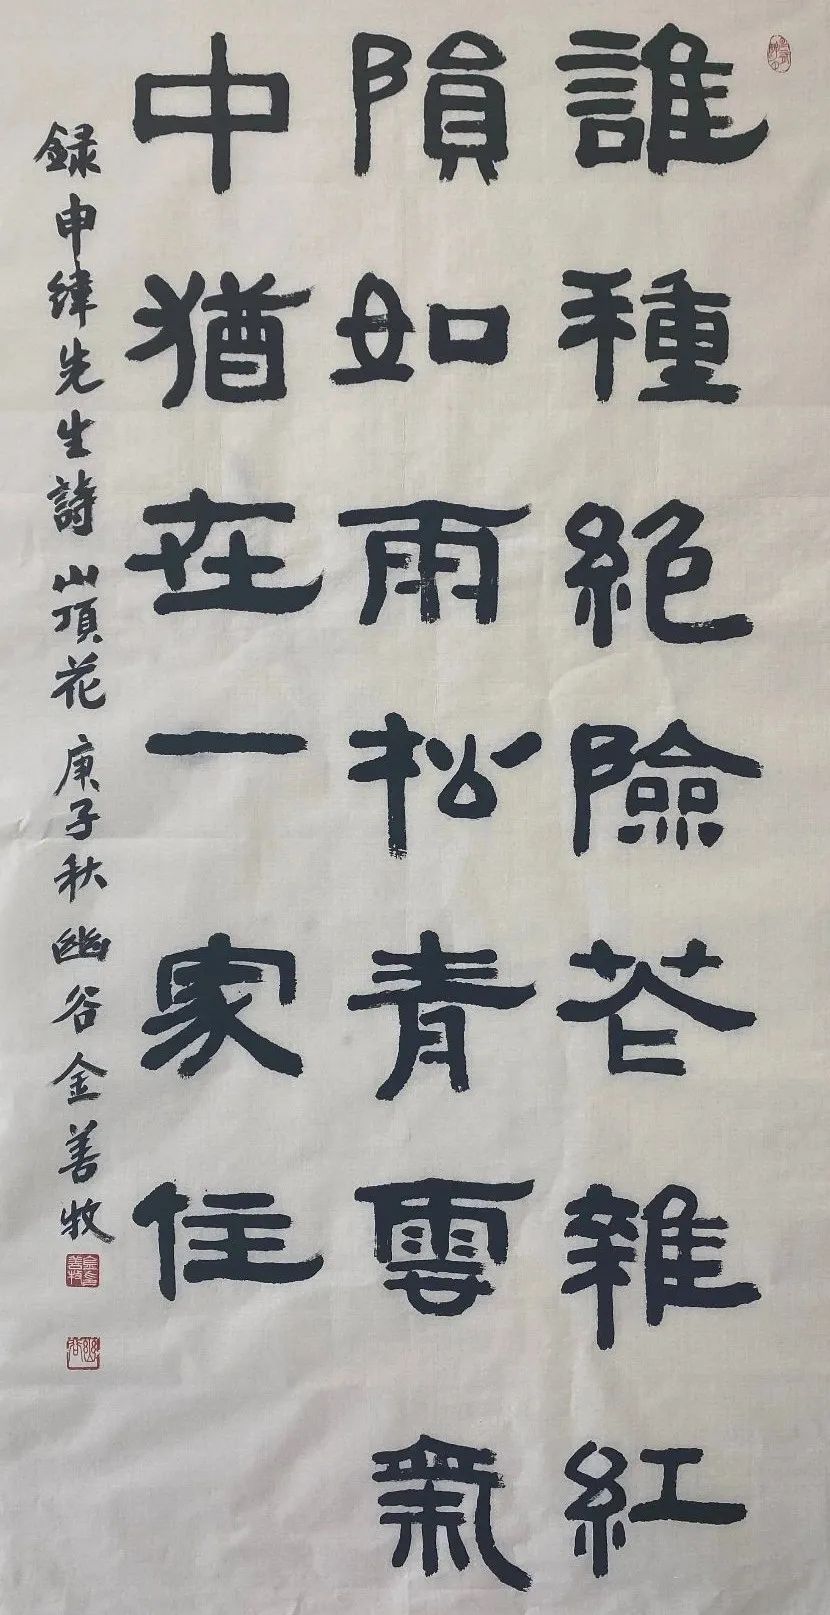 誰種絶險花雜紅
隕如雨松青雲氣
中猶在一家住
録申緯先生詩山頂花庚子秋幽谷金善牧